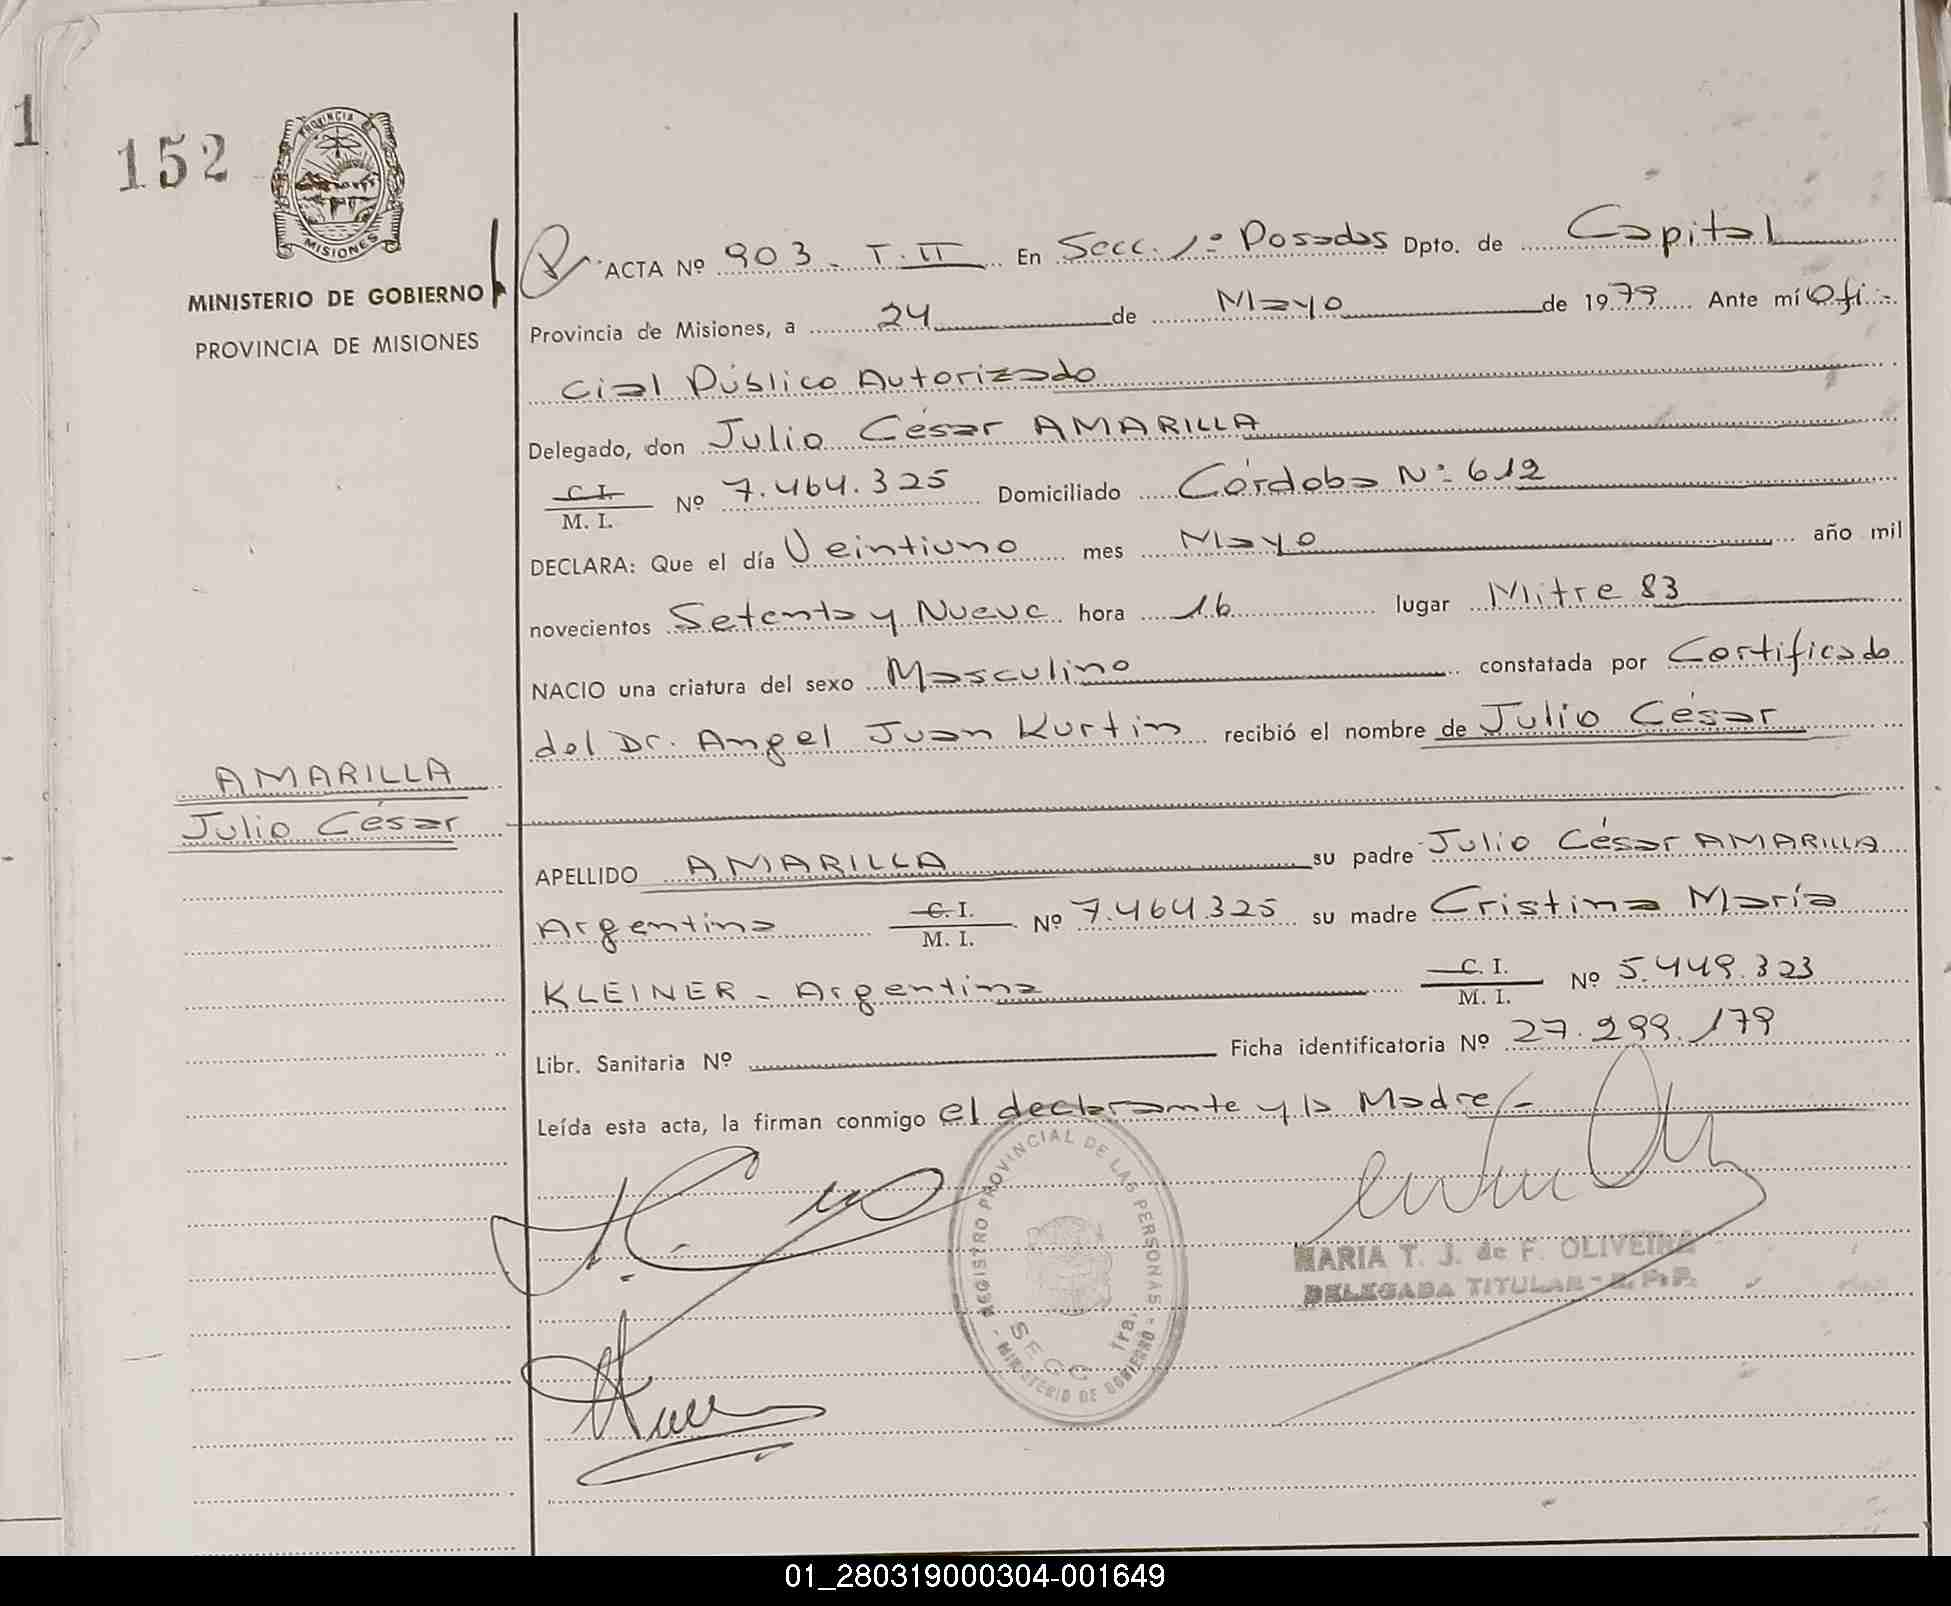 1
152
PROVINCIA DE
MISIONES
MINISTERIO DE GOBIERNO
PROVINCIA DE MISIONES
ACTA Nº 903 - T. II En Secc. 1º Posadas Dpto. de Capital
Provincia de Misiones, a 24 de Mayo de 1979 Ante mí Ofi-
cial Público Autorizado
Delegado, don Julio César AMARILLA
C. I.
M. I. Nº 7.464.325 Domiciliado Córdoba Nº 612
DECLARA: Que el día Veintiuno mes Mayo año mil
novecientos Setenta y Nueve hora 16 lugar Mitre 83
NACIO una criatura del sexo Masculino constatada por Certificado
del Dr. Angel Juan Kurtin recibió el nombre de Julio César
AMARILLA
Julio César
APELLIDO AMARILLA su padre Julio César AMARILLA
Argentina C. I.
M. I. Nº 7.464.325 su madre Cristina María
KLEINER - Argentina C. I.
M. I. Nº 5.449.323
Libr. Sanitaria Nº Ficha identificatoria Nº 27.299.179
Leída esta acta, la firman conmigo el declarante y la Madre -
REGISTRO PROVINCIAL DE LAS PERSONAS
- MINISTERIO DE GOBIERNO -
SECC 1ra.
MARIA T. J. de F. OLIVEIRA
DELEGADA TITULAR - R. P. P.
01_280319000304-001649